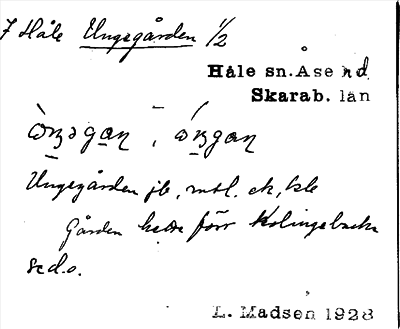 7 Håle Ungsgården 1/2
Håle sn. Åse hd
Skarab. län
Ungsgården jb, mtl. ek, kle
Gården hette förr Kolingsbacka
se d.o.
L. Madsen 1928